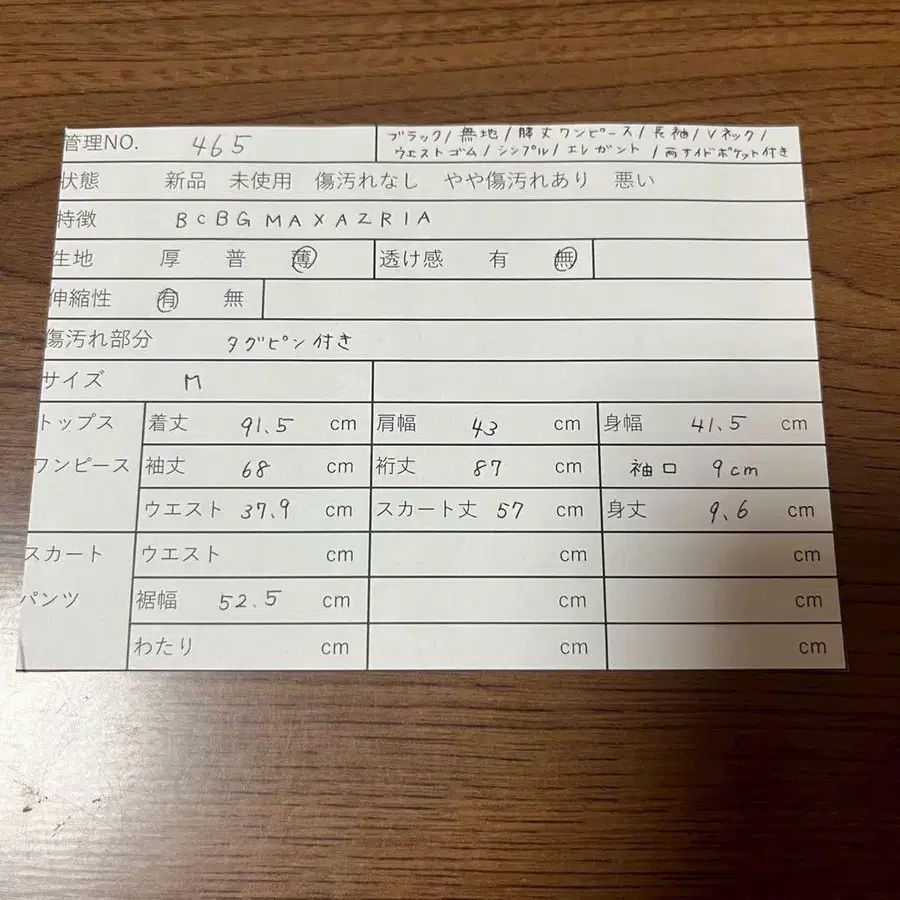 管理NO. 465 ブラック/無地/膝丈ワンピース/長袖/Vネック/
ウエストゴム/シンプル/エレガント/両サイドポケット付き
状態 新品 未使用 傷汚れなし やや傷汚れあり 悪い
特徴 BCBGMAXAZRIA
生地 厚 普 薄 透け感 有 無
伸縮性 有 無
傷汚れ部分 タグピン付き
サイズ M
トップス 着丈 91.5 cm 肩幅 43 cm 身幅 41.5 cm
ワンピース 袖丈 68 cm 裄丈 87 cm 袖口 9cm
ウエスト 37.9 cm スカート丈 57 cm 身丈 9.6 cm
スカート ウエスト cm cm cm
パンツ 裾幅 52.5 cm cm cm
わたり cm cm cm